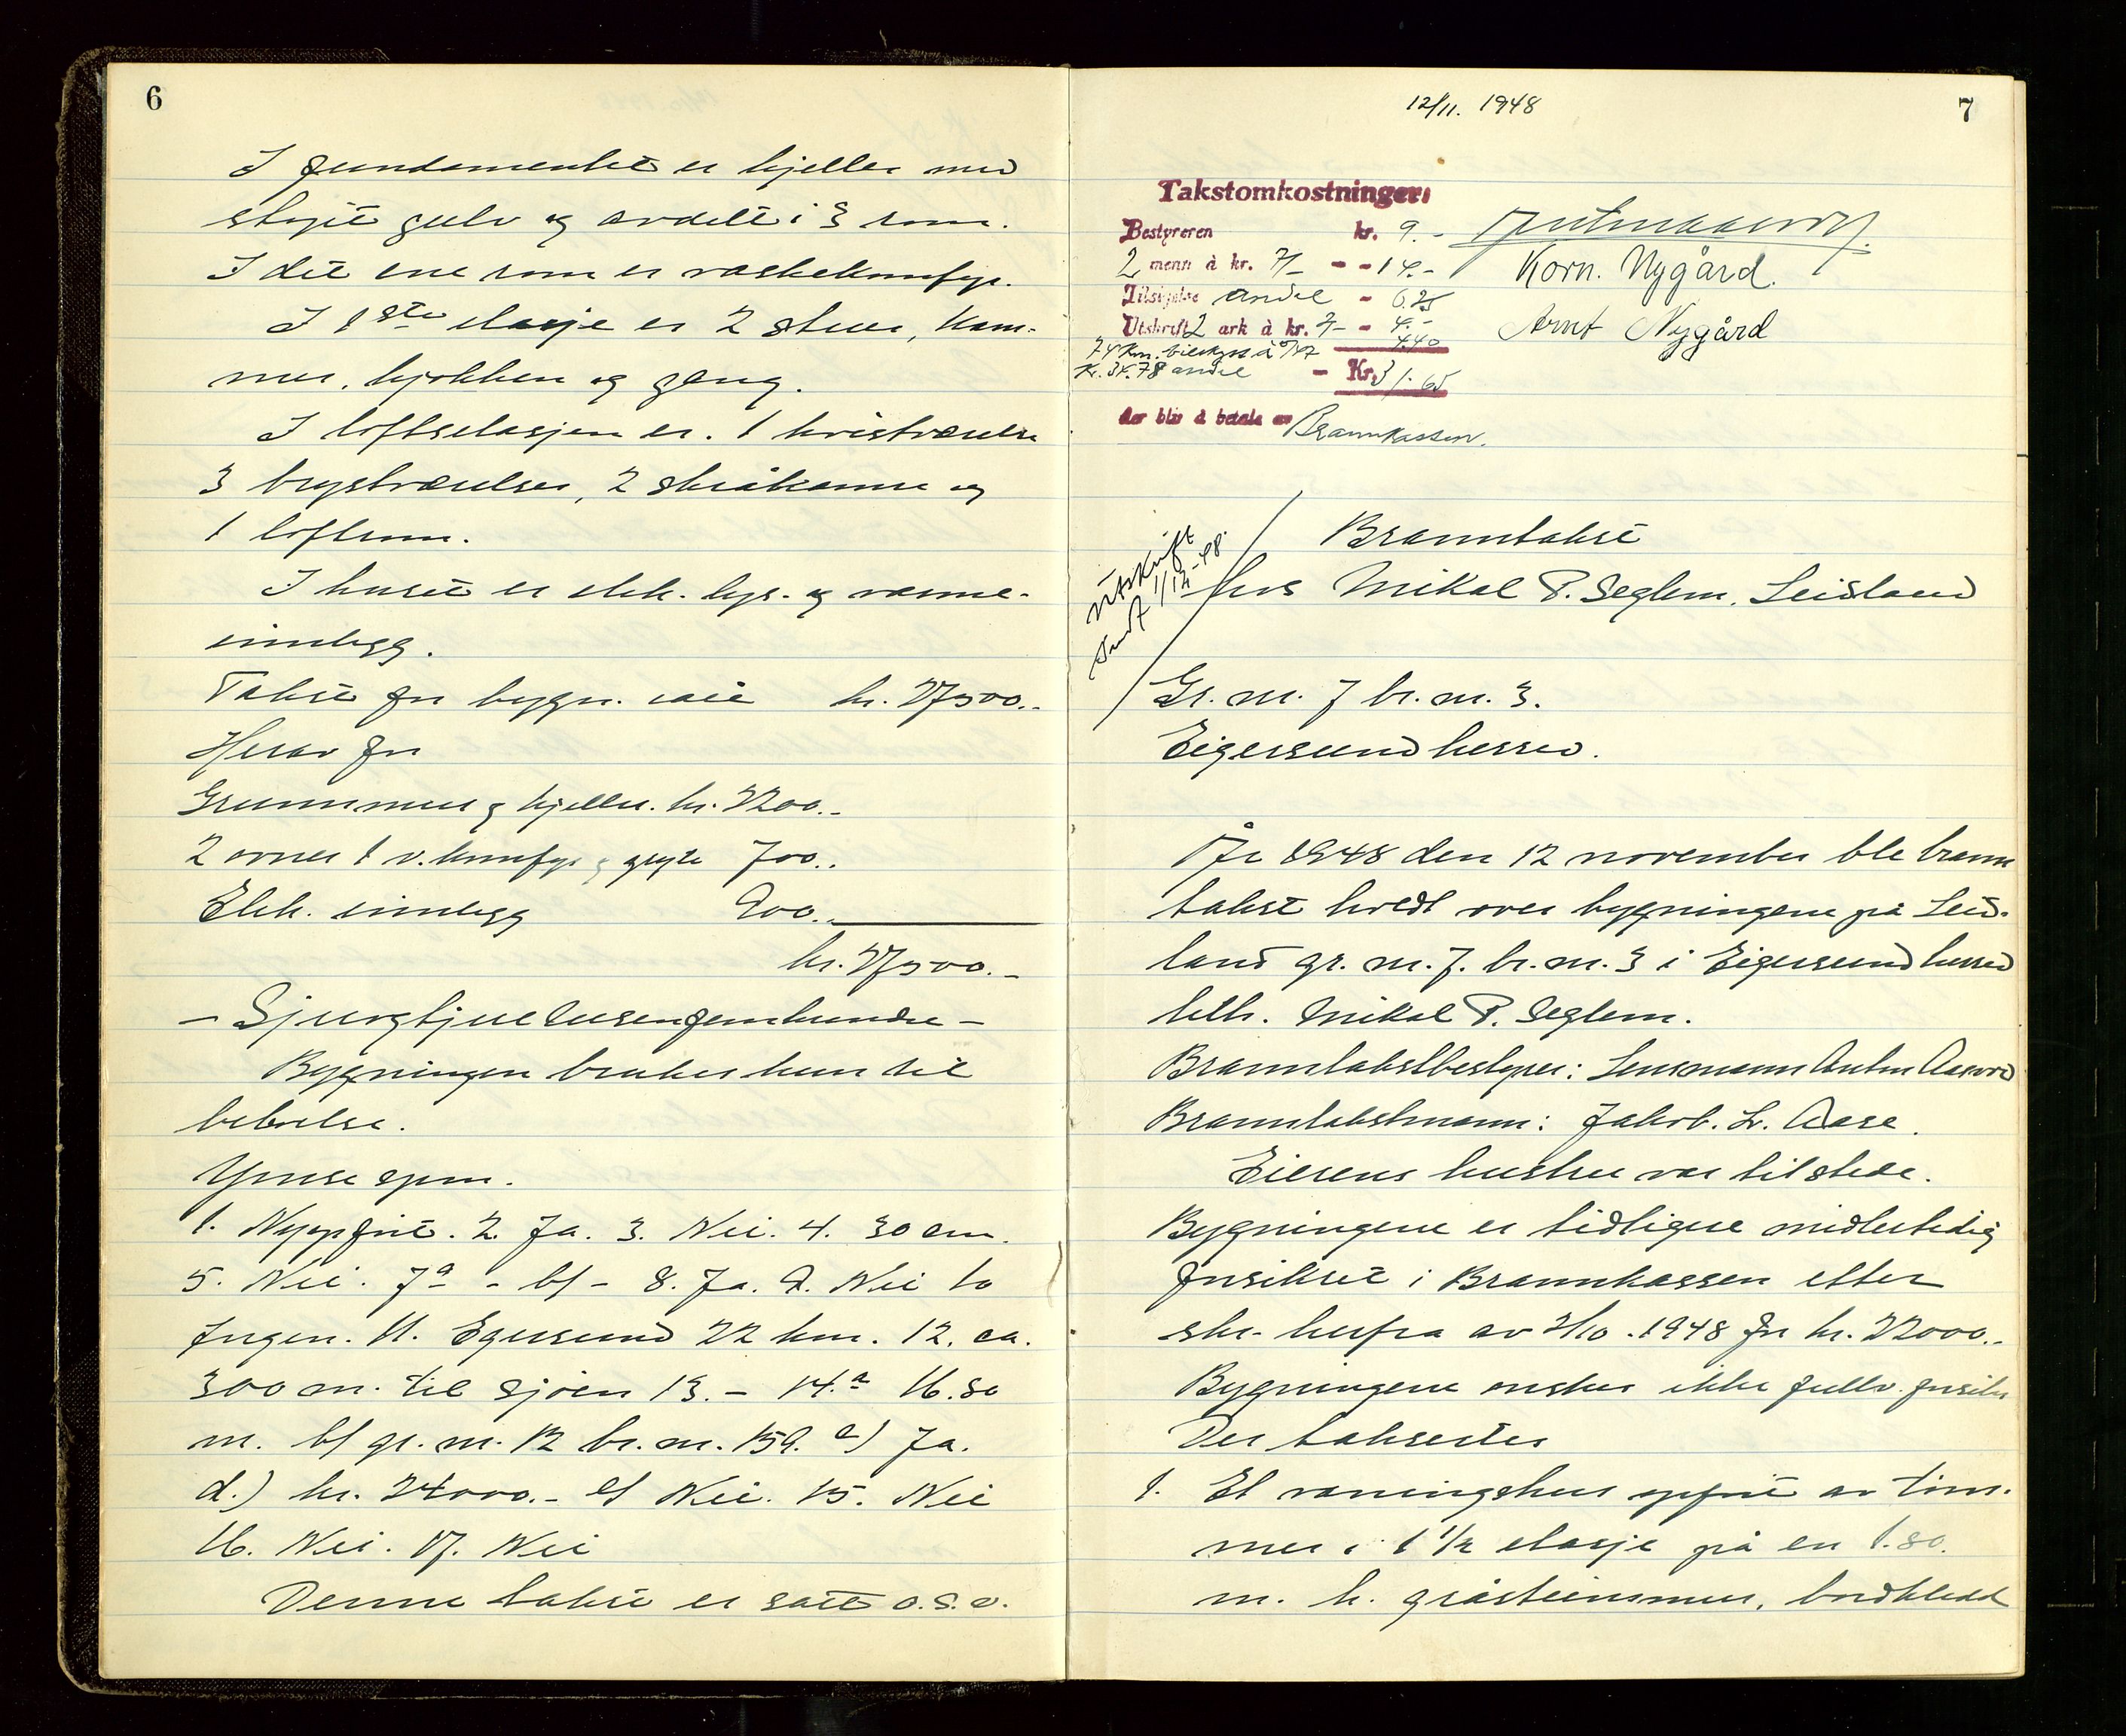 6
I fundamentet er kjeller med
støpt gulv og avdelt i 3 rom.
I det ene rom er vaskekomfyr.
I 1ste etasje er 2 stuer, kam-
mer, kjøkken og gang.
I loftsetasjen er 1 kvistværelse
3 brystværelser, 2 skråkammer og
1 loftrom.
I huset er elek. lys- og varme-
innlegg.
Takst for bygn. idie kr. 27500.-
Herav for
Grunnmur og kjeller. kr. 2200.-
2 ovner 1 v. komfyr og gryte 700.-
Elek. innlegg 900.-
kr. 27500.-
- Sjuogtjuetusenfemhundre -
Bygningen brukes kun til
beboelse.
Ymse spm.
1. Nyoppført. 2. Ja. 3. Nei. 4. 30 cm.
5. Nei. 7a - b) - 8. Ja. 9. Nei 10
Ingen. 11. Egersund 22 km. 12. ca.
300 m. til sjøen 13. - 14.a 16.80
m. b) gr. nr. 12 br. nr. 159. c) Ja.
d.) kr. 24000.- e) Nei. 15. Nei
16. Nei. 17. Nei
Denne takst er satt o.s.v.
12/11. 1948
7
Takstomkostninger:
Bestyreren kr. 9.-
2 menn à kr. 7/- - - 14.-
Tilsigelse andel - 6.25
Utskrift 2 ark à kr. 2/- - 4.-
74 km. bilskyss à 0/47 4.40
Kr. 34.78 andel - Kr. 31.65
som blir å betale av Brannkassen.
Korn. Nygård.
Arnt Nygård
Utskrift
sendt 1/12-48.
Branntakst
hos Mikal P. Seglem, Leidland
Gr. nr. 7 br. nr. 3.
Eigersund herred.
År 1948 den 12 november ble brann
takst holdt over bygningene på Leid-
land gr. nr. 7. br. nr. 3 i Eigersund herred
tilh. Mikal P. Seglem.
Branntakstbestyrer: Lensmann Anton Aasvold
Branntakstmann: Jakob. L. Aase.
Eierens hustru var tilstede.
Bygningene er tidligere midlertidig
forsikret i Brannkassen etter
skr. herfra av 2/10. 1948 for kr. 22000.-
Bygningene ønskes ikke fullv. forsikr
Der takseres
1. Et våningshus oppført av tøm-
mer i 1 1/2 etasje på en 1.80.
m. h. gråsteinsmur, bordkledd